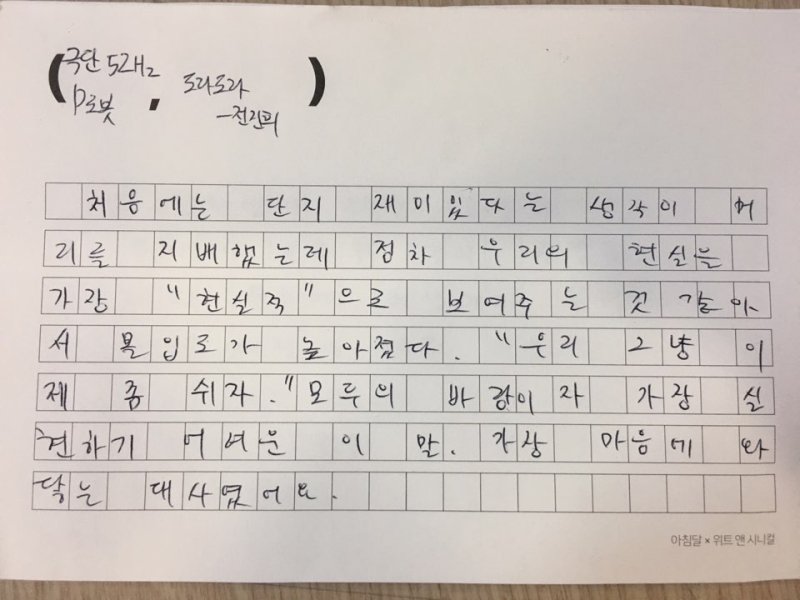 (극단 5개2 도라도라
P로봇 , -전진희)
처음에는 단지 재미있다는 생각이 머
리를 지배했는데 점차 우리의 현실을
가장 "현실적"으로 보여주는 것 같아
서 몰입도가 높아졌다. "우리 그냥 이
제 좀 쉬자."모두의 바람이자 가장 실
현하기 어려운 이 말. 가장 마음에 와
닿는 대사였어요.
아침달 × 위트 앤 시니컬